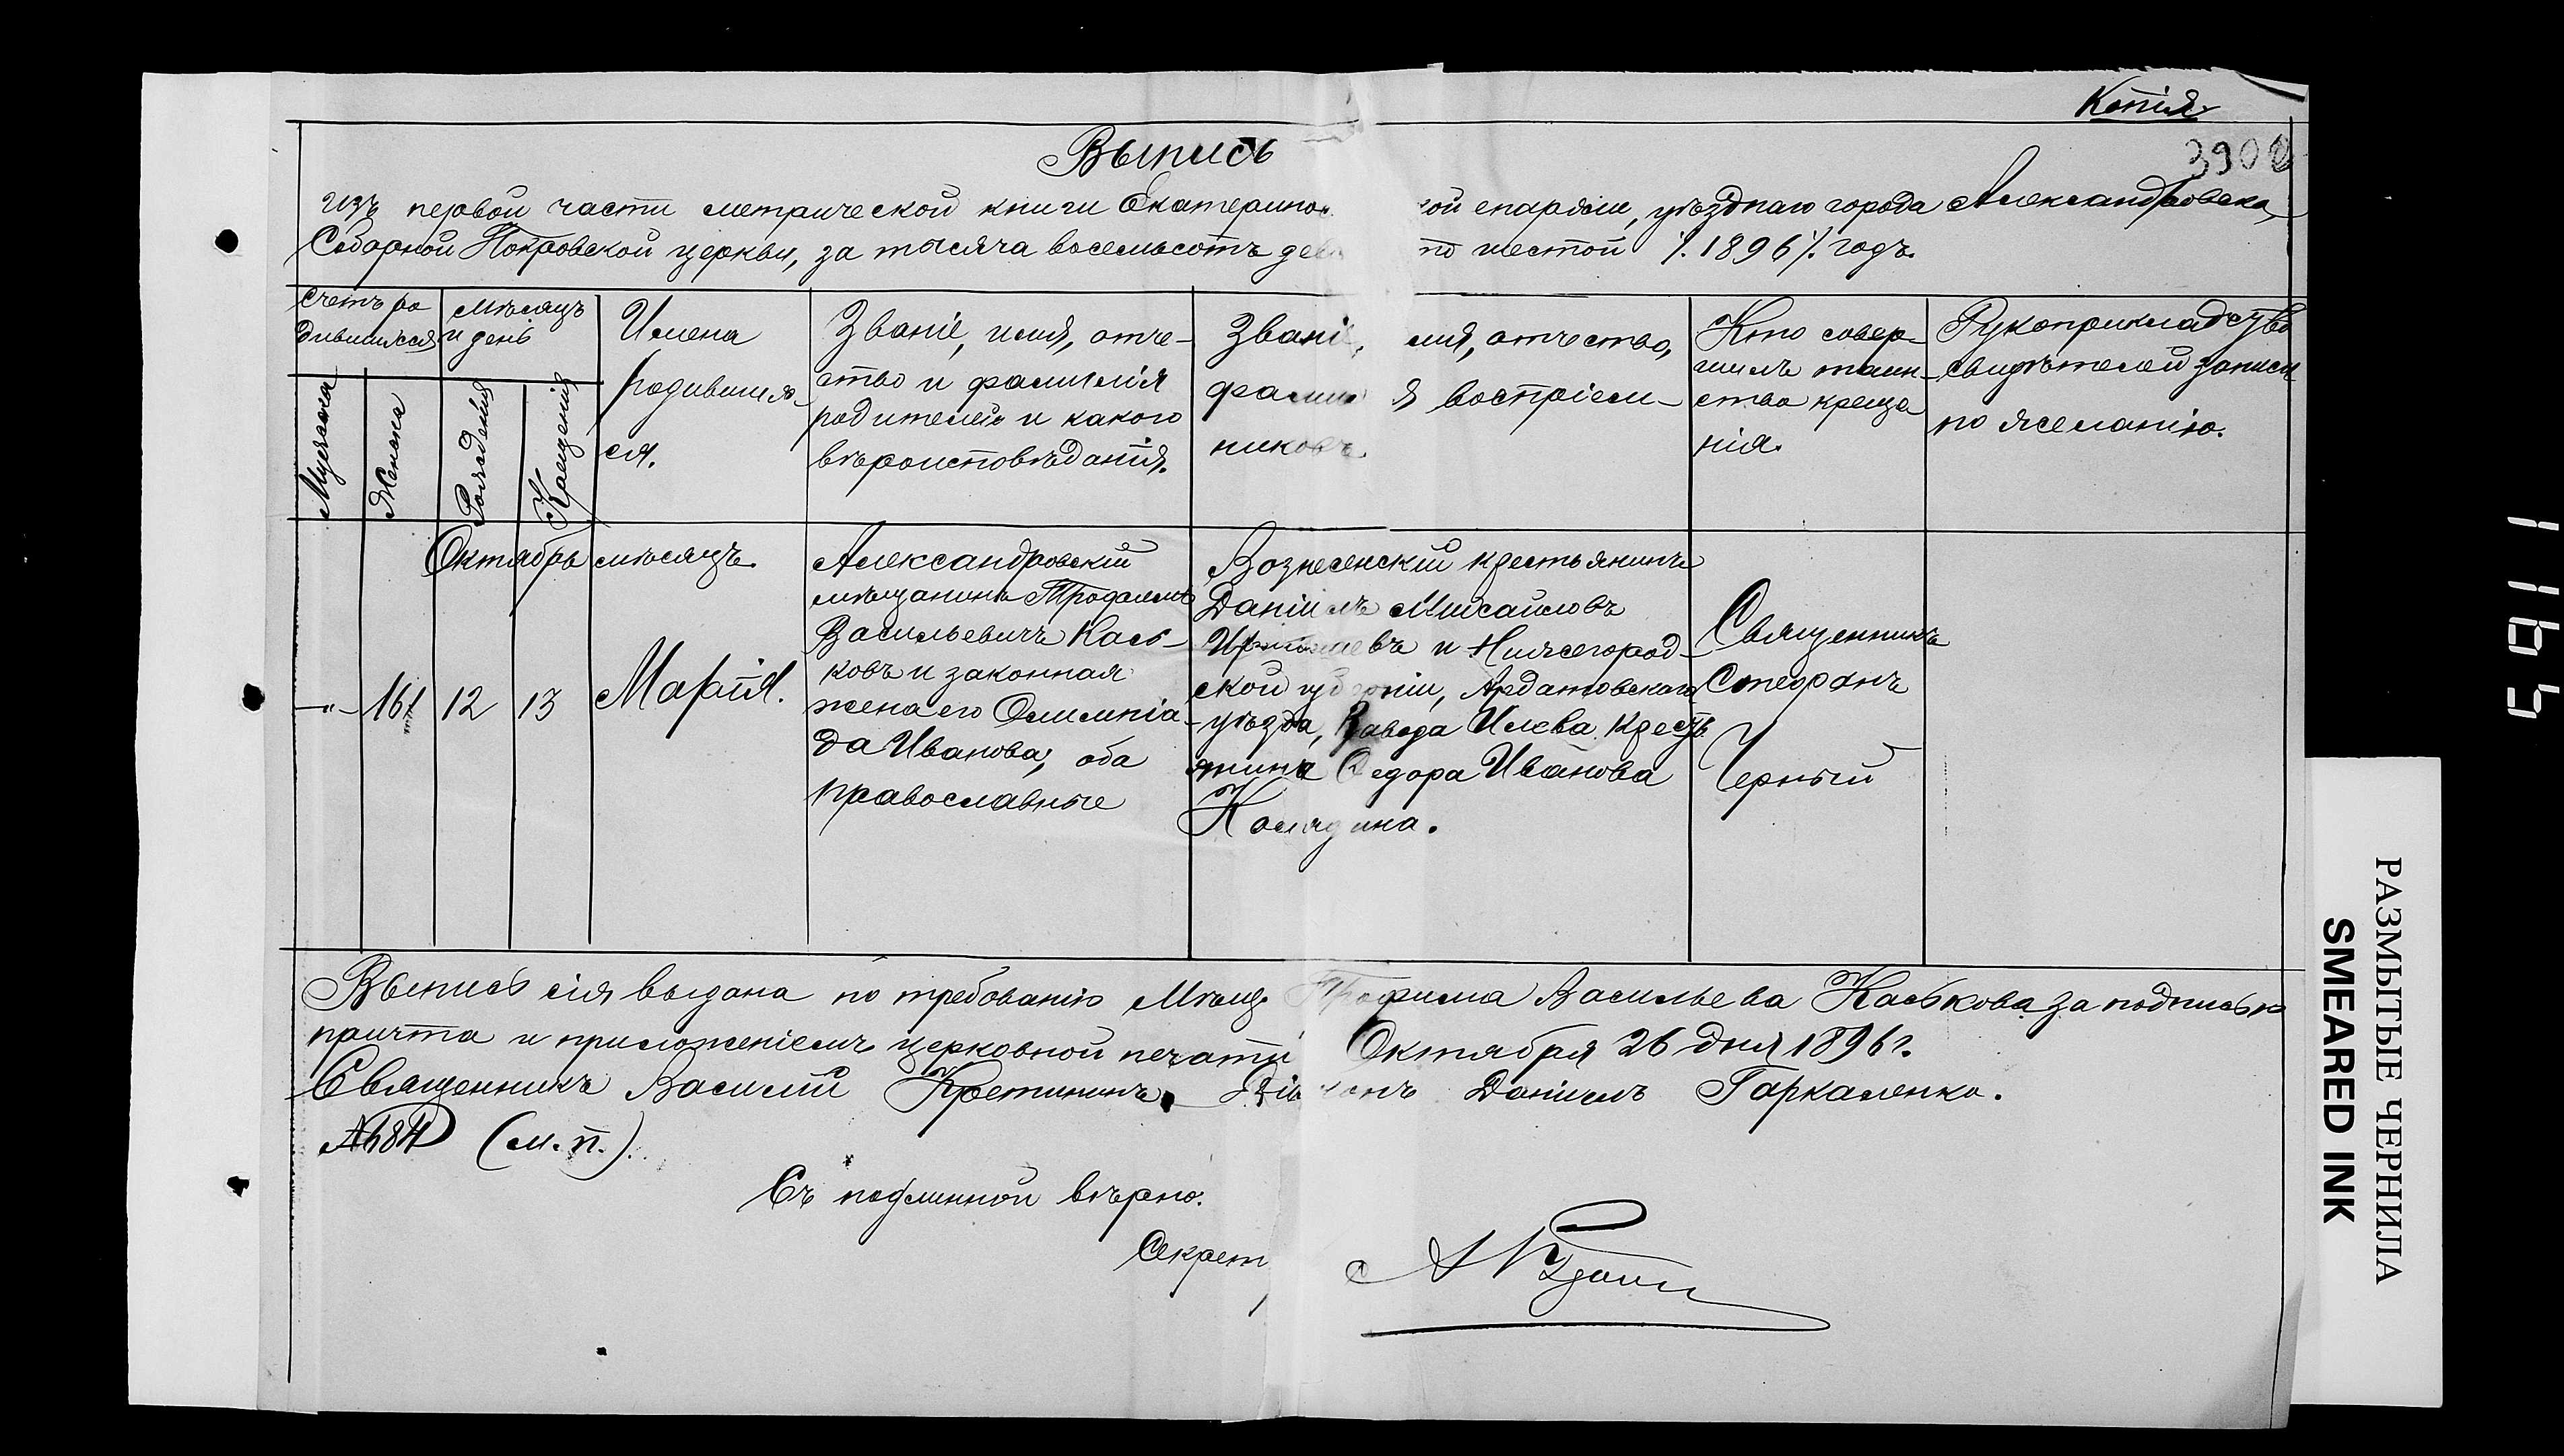 Копія
390
Выпись
изъ первой части метрической книги Екатерино ой епархіи, уѣзднаго города Александровска,
Соборной Покровской церкви, за тысяча восемьсотъ дев то шестой /. 1896 /. годъ.
Счетъ ро
дившихся
Мужеска
Женска
Мѣсяцъ
и день
Рожденія
Крещенія
Имена
родивших
ся.
Званіе, имя, отче-
ство и фамилія
родителей и какого
вѣроисповѣданія.
Звані мя, отчество,
фамили я воспріем-
никовъ.
Кто совер-
шилъ таин-
ство креще
нія.
Рукоприкладство
свидѣтелей записи
по желанію.
Октябрь мѣсяцъ.
-"-
161
12
13
Марія.
Александровскій
мѣщанинъ Трофимъ
Васильевичъ Кась-
ковъ и законная
жена его Олимпіа-
да Иванова, оба
православные
Вознесенскій крестьянинъ
Даніилъ Мисаиловъ
и Нижегород-
ской губерніи, Ардатовскаго
уѣзда, Завода Илева крестъ
янина Федора Иванова
Колядина.
Священникъ
Стефанъ
Черный
Выпись сія выдана по требованію Мѣщ. Трофима Васильева Каськова за подписью
причта и приложеніемъ церковной печати Октября 26 дня 1896 г.
Священникъ Василій Кретининъ. Діаконъ Даніилъ Гаркаленко.
№ 684 (м. п.).
Съ подлинной вѣрно.
Секрет
1165
РАЗМЫТЫЕ ЧЕРНИЛА
SMEARED INK